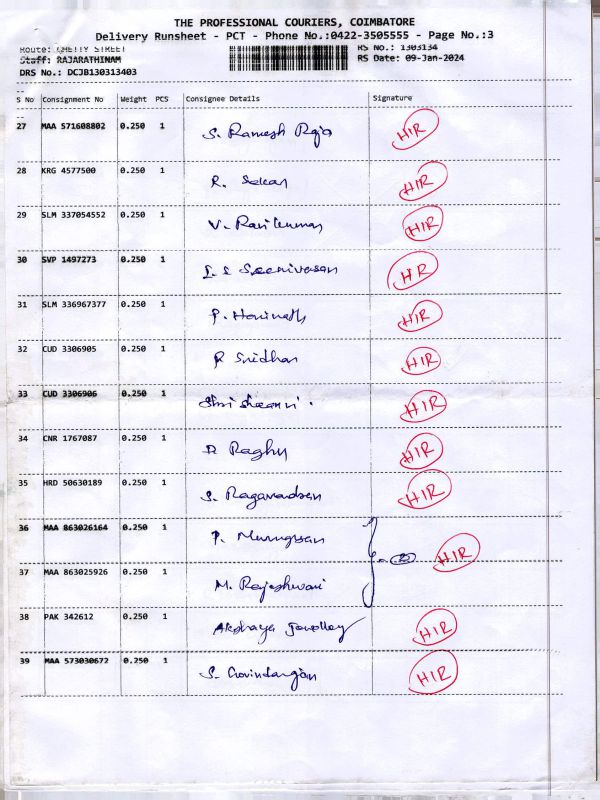 THE PROFESSIONAL COURIERS, COIMBATORE
Delivery Runsheet - PCT - Phone No.:0422-3505555 - Page No.:3
Route: CHETTY STREET RS No.: 1303134
Staff: RAJARATHINAM RS Date: 09-Jan-2024
DRS No.: DCJB130313403
S No Consignment No Weight PCS Consignee Details Signature
27 MAA 571608802 0.250 1 S. Ramesh Raja HIR
28 KRG 4577500 0.250 1 R. Sekar HIR
29 SLM 337054552 0.250 1 V. Ravikumar HIR
30 SVP 1497273 0.250 1 Sreenivasan HIR
31 SLM 336967377 0.250 1 P. Harinath HIR
32 CUD 3306905 0.250 1 R Sridhar HIR
33 CUD 3306906 0.250 1 HIR
34 CNR 1767087 0.250 1 Raghu HIR
35 HRD 50630189 0.250 1 S. Ragavadsen HIR
36 MAA 863026164 0.250 1 P. Murugesan HIR
37 MAA 863025926 0.250 1 M. Rajeshwari
38 PAK 342612 0.250 1 Akshaya Jewellery HIR
39 MAA 573030672 0.250 1 S. Govindarajan HIR